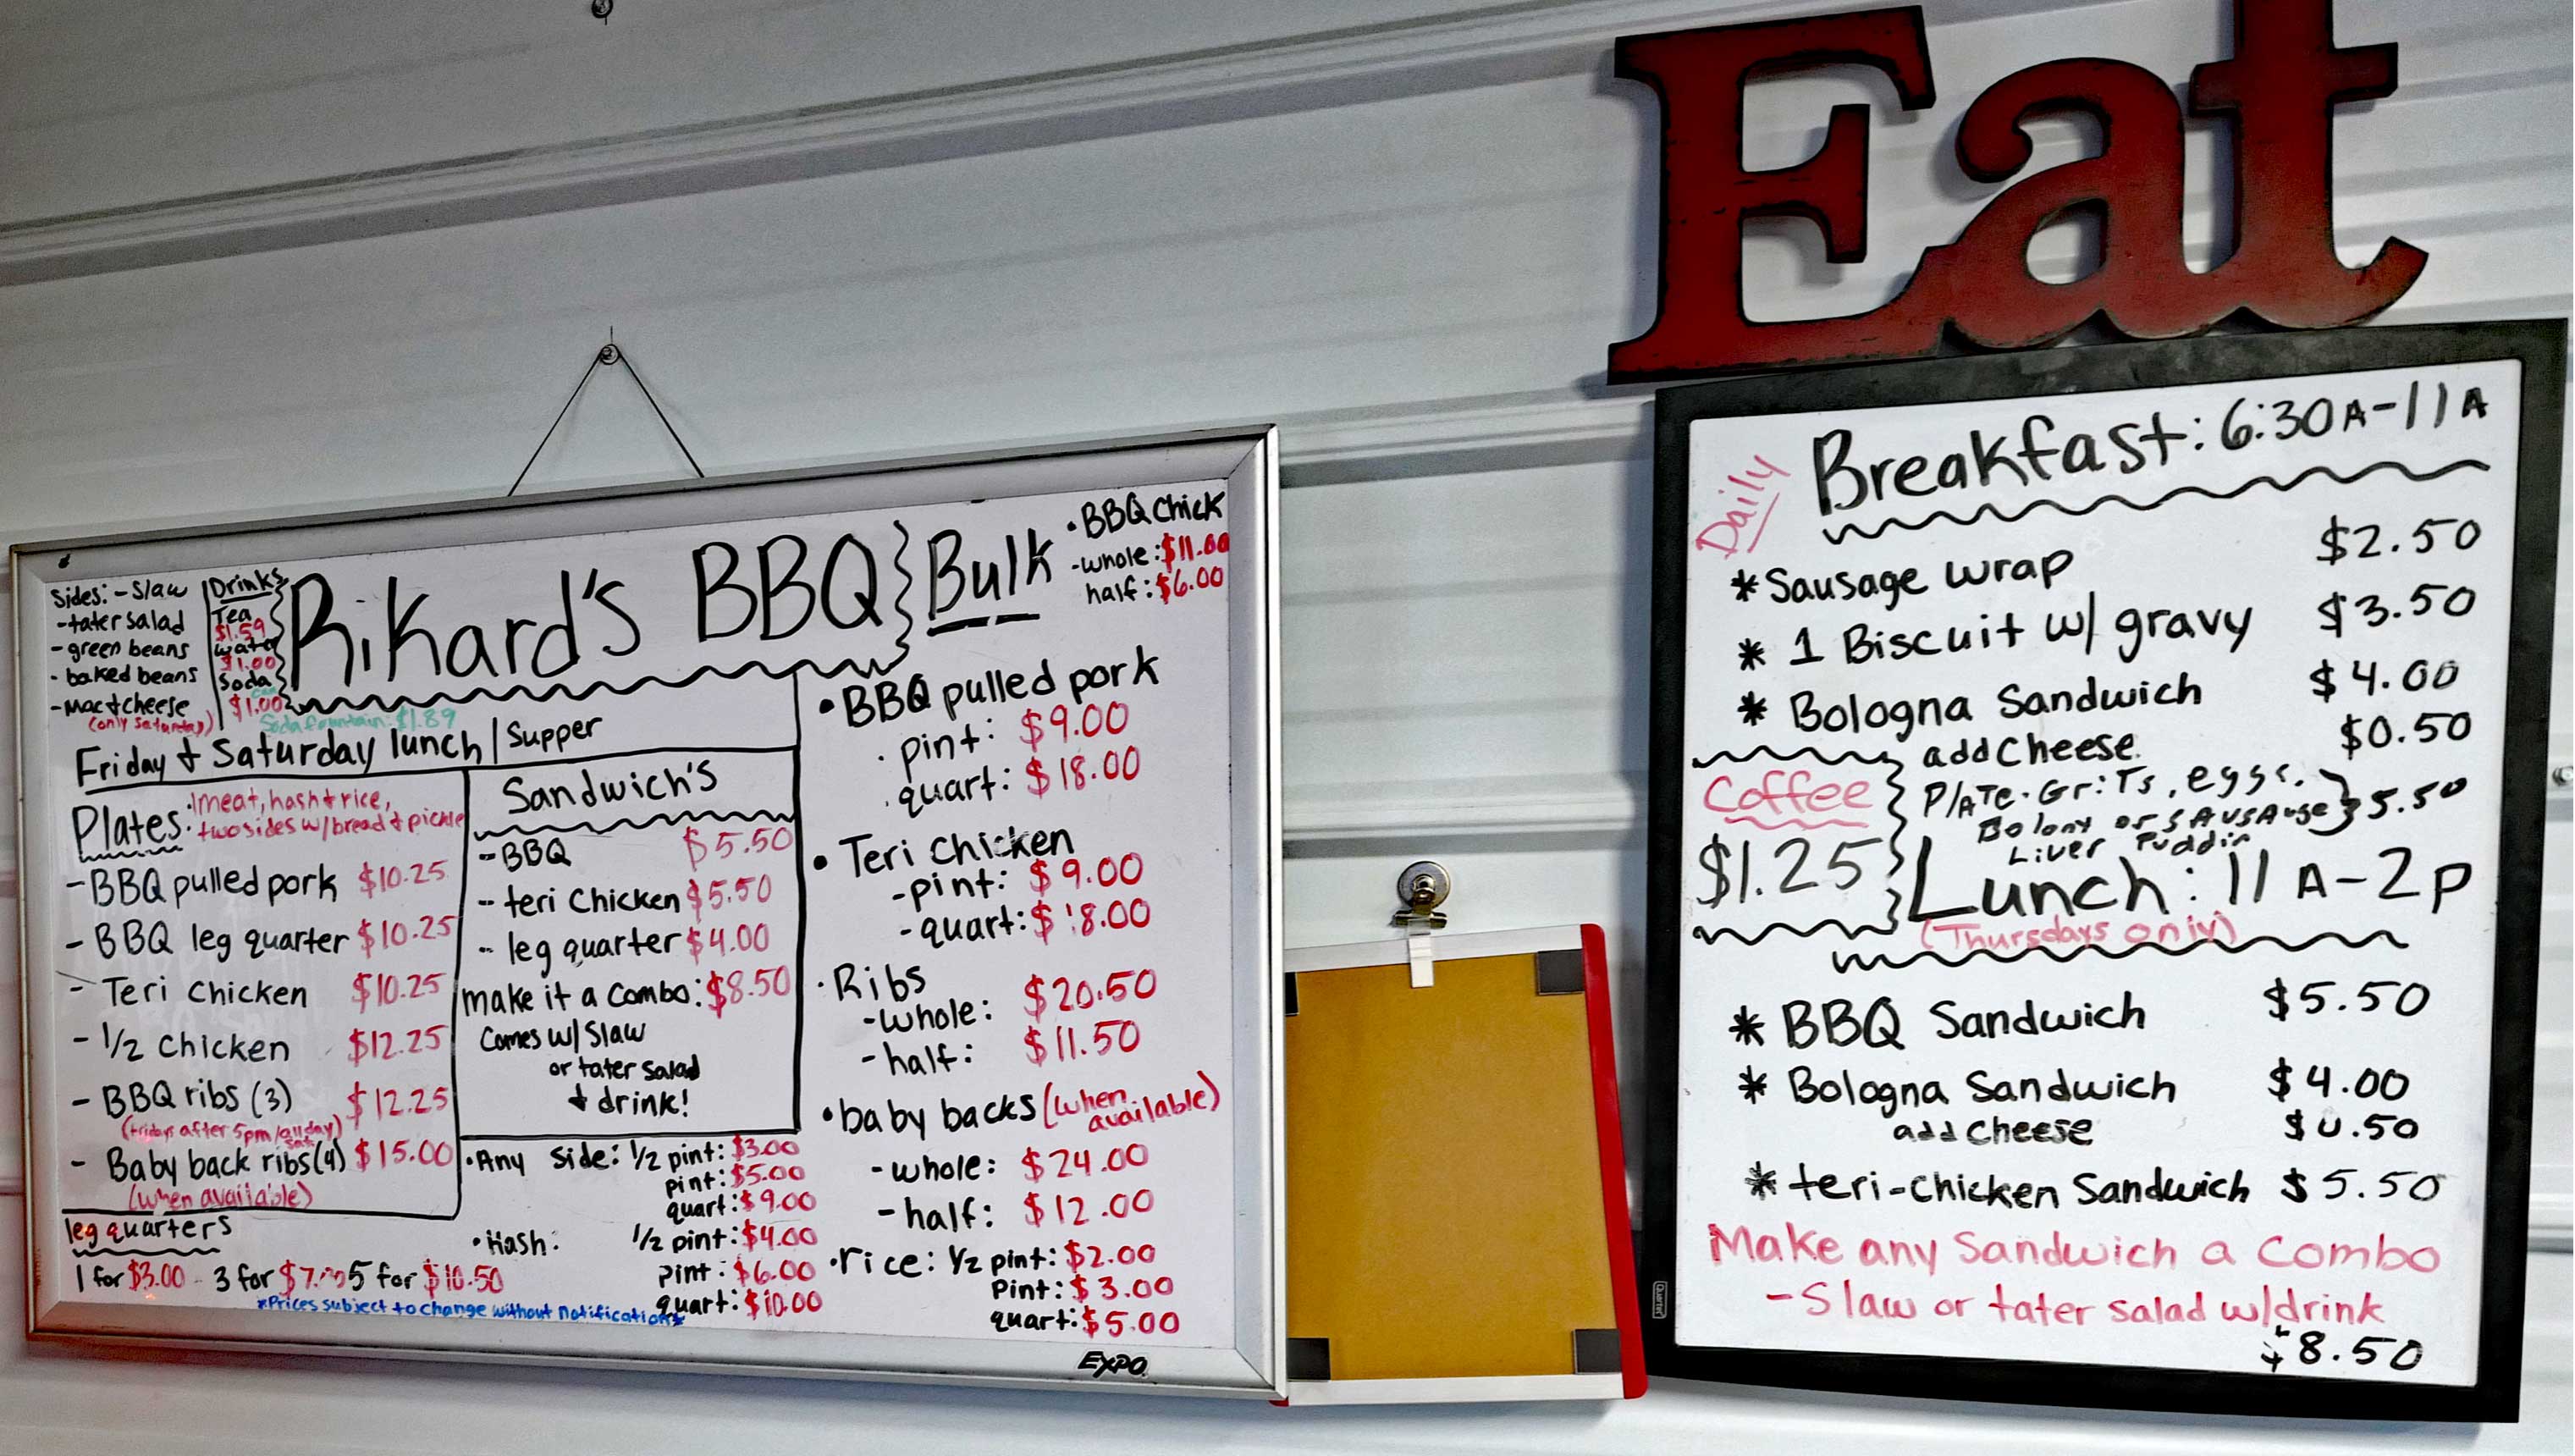 Eat
Sides: - Slaw
- tater salad
- green beans
- baked beans
- Mac + cheese
(only saturday)
Drinks
Tea
$1.59
Water
$1.00
Soda
can
$1.00
Soda fountain: $1.89
Rikard's BBQ
Friday + Saturday lunch | Supper
Plates: 1 meat, hash + rice,
two sides w/ bread + pickle
- BBQ pulled pork $10.25
- BBQ leg quarter $10.25
- Teri chicken $10.25
- 1/2 chicken $12.25
- BBQ ribs (3) $12.25
(fridays after 5pm/all day sat)
- Baby back ribs (4) $15.00
(when available)
leg quarters
1 for $3.00 - 3 for 5 for $10.50
*Prices subject to change without notification*
Sandwich's
- BBQ $5.50
- teri chicken $5.50
- leg quarter $4.00
make it a combo: $8.50
Comes w/ Slaw
or tater salad
+ drink!
• Any Side: 1/2 pint: $3.00
pint: $5.00
quart: $9.00
• Hash: 1/2 pint: $4.00
pint: $6.00
quart: $10.00
Bulk
• BBQ Chick
- whole: $11.00
half: $6.00
• BBQ pulled pork
• pint: $9.00
• quart: $18.00
• Teri Chicken
- pint: $9.00
- quart: $18.00
• Ribs
- whole: $20.50
- half: $11.50
• baby backs (when available)
- whole: $24.00
- half: $12.00
• rice: 1/2 pint: $2.00
Pint: $3.00
quart: $5.00
EXPO
Daily
Breakfast: 6:30A-11A
* Sausage wrap $2.50
* 1 Biscuit w/ gravy $3.50
* Bologna Sandwich $4.00
add Cheese $0.50
Coffee
$1.25
Plate. Grits, eggs.
Bolony or SAusAuge } 5.50
Liver Puddin
Lunch: 11A-2p
(Thursdays only)
* BBQ Sandwich $5.50
* Bologna Sandwich $4.00
add cheese $0.50
* teri-chicken Sandwich $5.50
Make any Sandwich a combo
- Slaw or tater salad w/drink
$8.50
Quartet